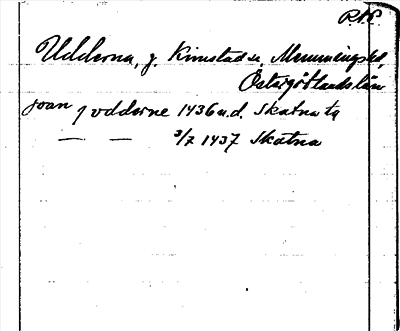 RAP.
Udderna, g. Kimstad sn, Memmings hd,
Östergötlands län
joan j vdderne 1436 u.d. Skatna ty
— — 3/7 1437 Skatna